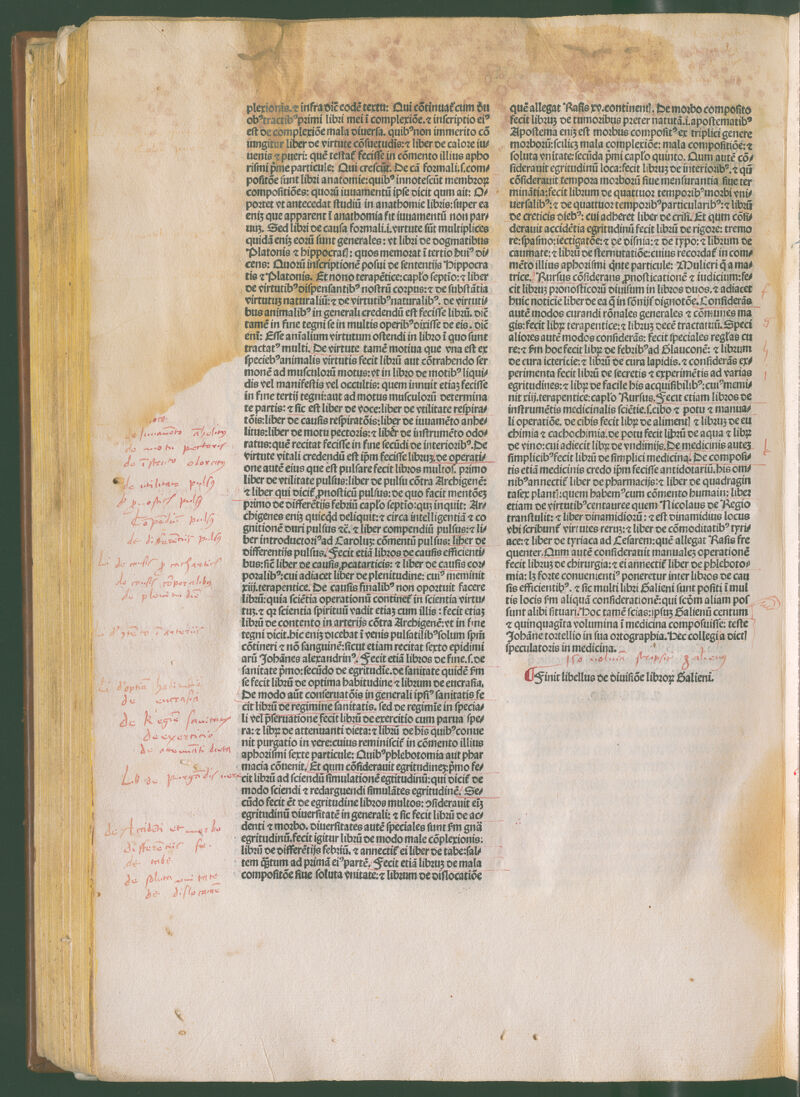 plexionis. ⁊ infra dic̄e codē textu: Qui cōtinuat᷑ cum dn̄
obꝰtractibꝰprimi libri mei ī complexiōe. ⁊ inscriptio eiꝰ
est de complexiōe mala diuersa. quibꝰnon immerito cō
iungitur liber de virtute cōsuetudis: ⁊ liber de calore iu⸗
uenis ⁊ pueri: quē testat᷑ fecisse in cōmento illius apho
rismi prīme particule: Qui crescūt. De cā formali.s.com⸗
positōe sunt libri anatomie: quibꝰ innotescūt membroꝝ
compositiōes: quorū iuuamentū ipse dicit quin ait: O⸗
portet vt antecedat studiū in anathomie libris: super ea
enīꝫ que apparent ī anathomia fit iuuamentū non par⸗
uuꝫ. Sed libri de causa formali.i.virtute sūt multiplices
quidā enīꝫ eorū sunt generales: vt libri de dogmatibus
Platonis ⁊ hippocrat᷑: quos memorat ī tertio huiꝰ di⸗
cens: Quorū inscriptionē posui de sententijs Hippocra
tis ⁊ Platonis. Et nono terapētice: capl’o septīo: ⁊ liber
de virtutibꝰdispensantibꝰ nostrū corpus: ⁊ de substātia
virtutuꝫ naturaliū: ⁊ de virtutibꝰnaturalibꝰ. de virtuti⸗
bus animalibꝰin generali credendū est fecisse librū. dic̄e
tamē in fine tegni se in multis operibꝰdixisse de eis. dic̄e
eni: Esse aīalium virtutum ostendi in libro ī quo sunt
tractatꝰ multi. De virtute tamē motiua que vna est ex
speciebꝰanimalis virtutis fecit librū aut cōtrahendo ser
monē ad musculorū motus: vt in libro de motibꝰ liqui⸗
dis vel manifestis vel occultis: quem innuit etiaꝫ fecisse
in fine tertij tegni: aut ad motus musculorū determina
te partis: ⁊ sic est liber de voce: liber de vtilitate respira⸗
tōis: liber de causis respiratōis: liber de iuuamēto anhe⸗
litus: liber de motu pectoris: ⁊ liber de instrumēto odo⸗
ratus: quē recitat fecisse in fine secūdi de interioribꝰ. De
virtute vitali credendū est ip̄m fecisse librum. de operati⸗
one autē eius que est pulsare fecit libros multos. primo
liber de vtilitate pulsus: liber de pulsu cōtra Archigenē:
⁊ liber qui dicit᷑ pnosticū pulsus: de quo facit mentōeꝫ
primo de differētijs febriū capl’o septīo: quꝫ inquit: Ar⸗
chigenes eniꝫ quicqd deliquit: ⁊ circa intelligentiā ⁊ co
gnitionē omī pulsus ⁊c̄. ⁊ liber compendiū pulsus: ⁊ li⸗
ber introductoriꝰad Caroluꝫ: cōmentū pulsus: liber de
differentijs pulsus. Fecit etiā libros de causis efficienti⸗
bus: sic̄ liber de causis pcatarticis: ⁊ liber de causis cor
poralibꝰ: cui adiacet liber de plenitudine: cuiꝰ meminit
xiij.terapentice. De causis finalibꝰ non oportuit facere
librū: quia scīetia operationū continet᷑ in scientia virtu⸗
tuꝫ. ⁊ qꝫ scientia spirituū vadit etiaꝫ cum illis: fecit etiaꝫ
librū de contento in arterijs cōtra Archigenē: vt in fine
tegni dicit. hic enīꝫ dicebat ī venis pulsatilibꝰsolum spm̄
cōtineri ⁊ nō sanguinē: sicut etiam recitat sexto epidimi
arū Johānes alexandrinꝰ. Fecit etiā libros de fine.s.de
sanitate prīmo: secūdo de egritudīe. de sanitate quidē prīm
se fecit librū de optima habitudine ⁊ librum de eucrasia.
De modo aūt conseruatōis in generali ipsiꝰ sanitatis fe
cit librū de regimine sanitatis. sed de regimīe in specia⸗
li vel pseruatione fecit librū de exercitio cum parua spe⸗
ra: ⁊ librꝫ de attenuanti dieta: ⁊ librū de his quibꝰconue
nit purgatio in vere: cuius reminiscit᷑ in cōmento illius
aphorismi sexte particule: Quibꝰphlebotomia aut phar
macia cōuenit. Et qum cōsiderauit egritudineꝫ: prīmo fe⸗
cit librū ad sciendū simulationē egritudinū: qui dicit᷑ de
modo sciendi ⁊ redarguendi simulātes egritudinē. Se⸗
cūdo fecit ēt de egritudine libros multos: ꝯsiderauit eīꝫ
egritudinū diuersitatē in generali: ⁊ sic fecit librū de ac⸗
cidenti ⁊ morbo. diuersitates autē speciales sunt scd̄m gn̄ā
egritudinū. fecit igitur librū de modo male cōplexionis:
librū de differētijs febriū. ⁊ annectit᷑ ei liber de tabe: sal⸗
tem qꝫtum ad primā eiꝰpartē. Fecit etiā libruꝫ de mala
compositōe siue soluta vnitate: ⁊ librum de dislocatiōe
quē allegat Rasis xv.continent᷑. De morbo composito
fecit libruꝫ de tumoribus preter naturā.i.apostematibꝰ
Apostema enīꝫ est morbus compositꝰex triplici genere
morborū: scilicꝫ mala complexiōe: mala compositiōe: ⁊
soluta vnitate: secūda prīmi capl’o quinto. Qum autē cō⸗
siderauit egritudinū loca: fecit libruꝫ de interioribꝰ. ⁊ qn̄
cōsiderauit tempora morborū siue mensurantia siue ter
minātia: fecit librum de quattuor temporibꝰmorbi vni⸗
uersalibꝰ: ⁊ de quattuor temporibꝰparticularibꝰ: ⁊ librū
de creticis diebꝰ: cui adheret liber de crisi. Et qum cōsi⸗
derauit accidētia egritudinū fecit librū de rigore: tremo
re: spasmo: iectigatōe: ⁊ de disnia: ⁊ de typo: ⁊ librum de
caumate: ⁊ librū de sternutatiōe: cuius recordat᷑ in com⸗
mēto illius aphorismi qn̄te particule: Mulieri q̄ a ma⸗
trice. Rursus cōsiderans pnosticationē ⁊ iudicium: fe⸗
cit libruꝫ pronosticorū diuisum in libros duos. ⁊ adiacet
huic noticie liber de ea q̄ in sōnijs dignotōe. Considerās
autē modos curandi rōnales generales ⁊ cōmunes ma
gis: fecit librꝫ terapentice: ⁊ libruꝫ decē tractatuū. Speci
aliores autē modos considerās: fecit speciales reglas cu
re: ⁊ scd̄m hoc fecit librꝫ de febribꝰad Glauconē: ⁊ librum
de cura ictericie: ⁊ librū de cura lapidis. ⁊ considerās ex⸗
perimenta fecit librū de secretis ⁊ experimētis ad varias
egritudines: ⁊ librꝫ de facile his acquisibilibꝰ: cuiꝰmemi⸗
nit xiij.terapentice: capl’o Rursus. Fecit etiam libros de
instrumētis medicinalis sciētie.s.cibo ⁊ potu ⁊ manua⸗
li operatiōe. de cibis fecit librꝫ de aliment᷑ ⁊ libruꝫ de eu
chimia ⁊ cachochimia. de potu fecit librū de aqua ⁊ librꝫ
de vino: cui adiecit librꝫ de vindimijs. De medicinis auteꝫ
simplicibꝰfecit librū de simplici medicina. De composi⸗
tis etiā medicinis credo ip̄m fecisse antidotariū. his om⸗
nibꝰannectit᷑ liber de pharmacijs: ⁊ liber de quadragin
tasex plant᷑: quem habemꝰcum cōmento humain: liber
etiam de virtutibꝰcentauree quem Nicolaus de Regio
transtulit: ⁊ liber dinamidiorū: ⁊ est dinamidius locus
vbi scribunt᷑ virtutes rerum: ⁊ liber de cōmoditatibꝰ tyri⸗
ace: ⁊ liber de tyriaca ad Cesarem: quē allegat Rasis fre
quenter. Qum autē considerauit manualeꝫ operationē
fecit libruꝫ de chirurgia: ⁊ ei annectit᷑ liber de phleboto⸗
mia: lꝫ forte conuenientiꝰ poneretur inter libros de cau
sis efficientibꝰ. ⁊ sic multi libri Galieni sunt positi ī mul
tis locis scd̄m aliquā considerationē: qui scd̄m aliam pos
sunt alibi situari. Hoc tamē scias: ipsuꝫ Galienū centum
⁊ quinquagīta volumina ī medicina composuisse: teste
Johāne tortellio in sua ortographia. Hec collegi a dict᷑
speculatoris in medicina.
150 volumina scripsit galienus
Finit libellus de diuisiōe libroꝝ Galieni.
de iuuamēto anhelitꝰ
de motu pectoris
de īstrumēto odoratus
de utilitate pulsꝰ
de pnosticis pulsꝰ
Compendium pulsꝰ
de differentijs pulsꝰ
de plenitudīe
de eucrasia
de Regīe sanitatis
de exercitio
de attenuāti dieta
de Accidenti et morbo
differentijs fe.
de tabe
de soluta unitate
de dislocatiōe